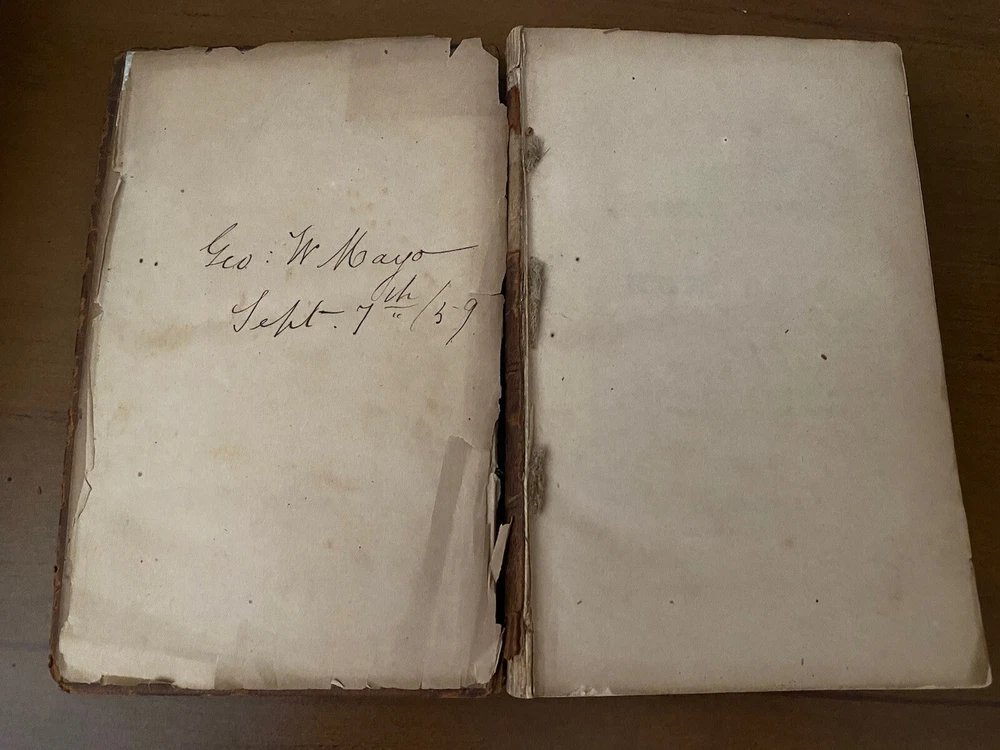 Geo: W Mayo
Sept. 7th /59